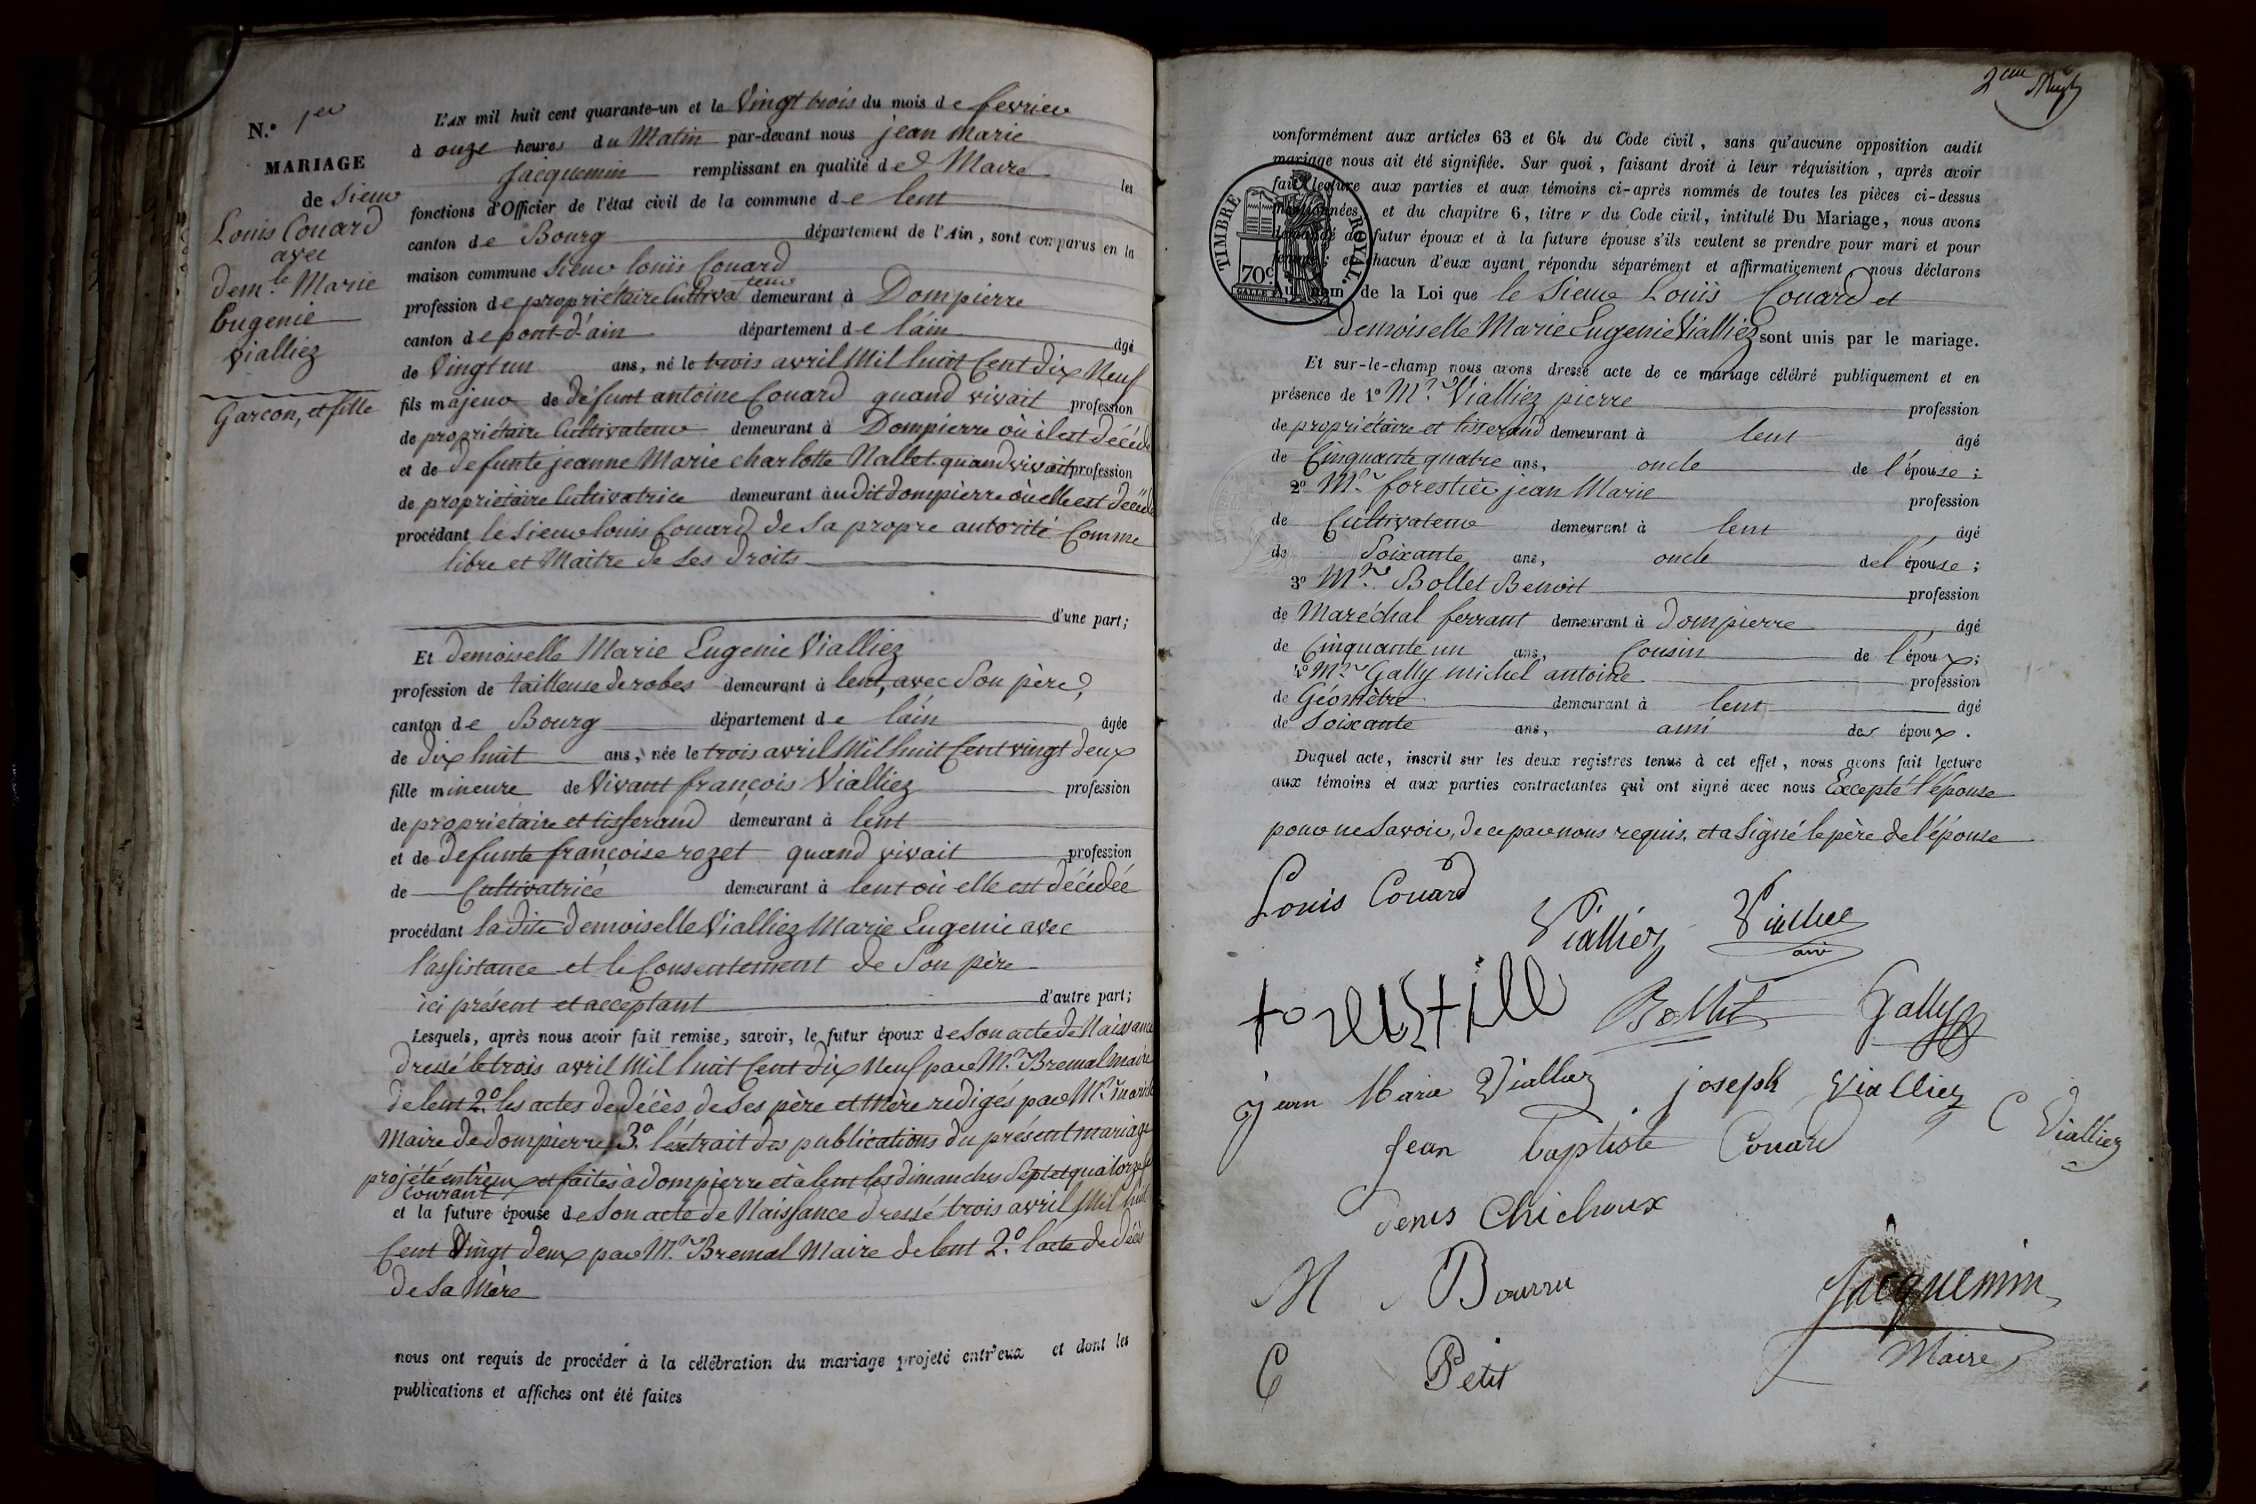 N.º 1er
MARIAGE
de Sieur
Louis Couard
avec
demlle Marie
Eugenie
Vialliez
Garcon, et fille
L'AN mil huit cent quarante-un et le Vingt trois du mois de fevrier
à onze heures du Matin par-devant nous jean Marie
Jacquemin remplissant en qualité de Maire les
fonctions d'Officier de l'état civil de la commune de lent
canton de Bourg département de l'Ain, sont comparus en la
maison commune Sieur louis Couard
profession de proprietaire Cultivateur demeurant à Dompierre
canton de pont-d'ain département de lain âgé
de Vingt un ans, né le trois avril Mil huit Cent dix Neuf
fils majeur de défunt antoine Couard quand vivait profession
de propriétaire Cultivateur demeurant à Dompierre où il est décédé
et de defunte jeanne Marie charlotte Nallet quand vivait profession
de propriétaire Cultivatrice demeurant audit dompierre où elle est décédé
procédant le Sieur louis Couard de Sa propre autorité Comme
libre et Maitre de Ses droits
d'une part;
Et demoiselle Marie Eugenie Vialliez
profession de tailleuse de robes demeurant à lent, avec Son père,
canton de Bourg département de lain âgée
de dix huit ans, née le trois avril Mil huit Cent vingt deux
fille mineure de Vivant françois Vialliez profession
de propriétaire et tisserand demeurant à lent
et de defunte françoise rozet quand vivait profession
de Cultivatrice demeurant à lent où elle est décédée
procédant la dite demoiselle Vialliez Marie Eugenie avec
l'assistance et le Consentement de Son père
ici présent et acceptant d'autre part;
Lesquels, après nous avoir fait remise, savoir, le futur époux de Son acte de Naissance
dressé le trois avril Mil huit Cent dix Neuf par Mr Bremal maire
de lent 2.º les actes de décès de Ses père et Mère redigés par Mr
Maire de dompierre, 3.º l'extrait des publications du présent mariage
projété entr'eux et faites à dompierre et à lent les dimanches Sept et quatorze
courant
et la future épouse de Son acte de Naissance dressé trois avril Mil huit
Cent Vingt deux par Mr Bremal Maire de lent 2.º l'acte de décès
de Sa Mère
nous ont requis de procéder à la célébration du mariage projeté entr'eux et dont les
publications et affiches ont été faites
2eme
conformément aux articles 63 et 64 du Code civil, sans qu'aucune opposition audit
mariage nous ait été signifiée. Sur quoi, faisant droit à leur réquisition, après avoir
fait lecture aux parties et aux témoins ci-après nommés de toutes les pièces ci-dessus
mentionnées, et du chapitre 6, titre v du Code civil, intitulé Du Mariage, nous avons
demandé au futur époux et à la future épouse s'ils veulent se prendre pour mari et pour
femme; et chacun d'eux ayant répondu séparément et affirmativement nous déclarons
TIMBRE ROYAL. 70c.
Au nom de la Loi que le Sieur Louis Couard et
demoiselle Marie Eugenie Vialliez sont unis par le mariage.
Et sur-le-champ nous avons dressé acte de ce mariage célébré publiquement et en
présence de 1º Mr. Vialliez pierre profession
de propriétaire et tisserand demeurant à lent âgé
de Cinquante quatre ans, oncle de l'épouse;
2º Mr. forestier jean Marie profession
de Cultivateur demeurant à lent âgé
de Soixante ans, oncle de l'épouse;
3º Mr. Bollet Benoit profession
de Maréchal ferrant demeurant à dompierre âgé
de Cinquante un ans, Cousin de l'époux;
4º Mr Gally michel antoine profession
de Géomètre demeurant à lent âgé
de Soixante ans, ami des époux.
Duquel acte, inscrit sur les deux registres tenus à cet effet, nous avons fait lecture
aux témoins et aux parties contractantes qui ont signé avec nous Excepté l'épouse
pour ne Savoir, de ce par nous requis, et a Signé le père de l'épouse
Louis Couard
Vialliez Viallie
Bollet Gally
jean Marie Vialliez joseph Vialliez C Vialliez
Jean baptiste Couard
denis Chichoux
M Bourru
Jacquemin
Maire
C Petit